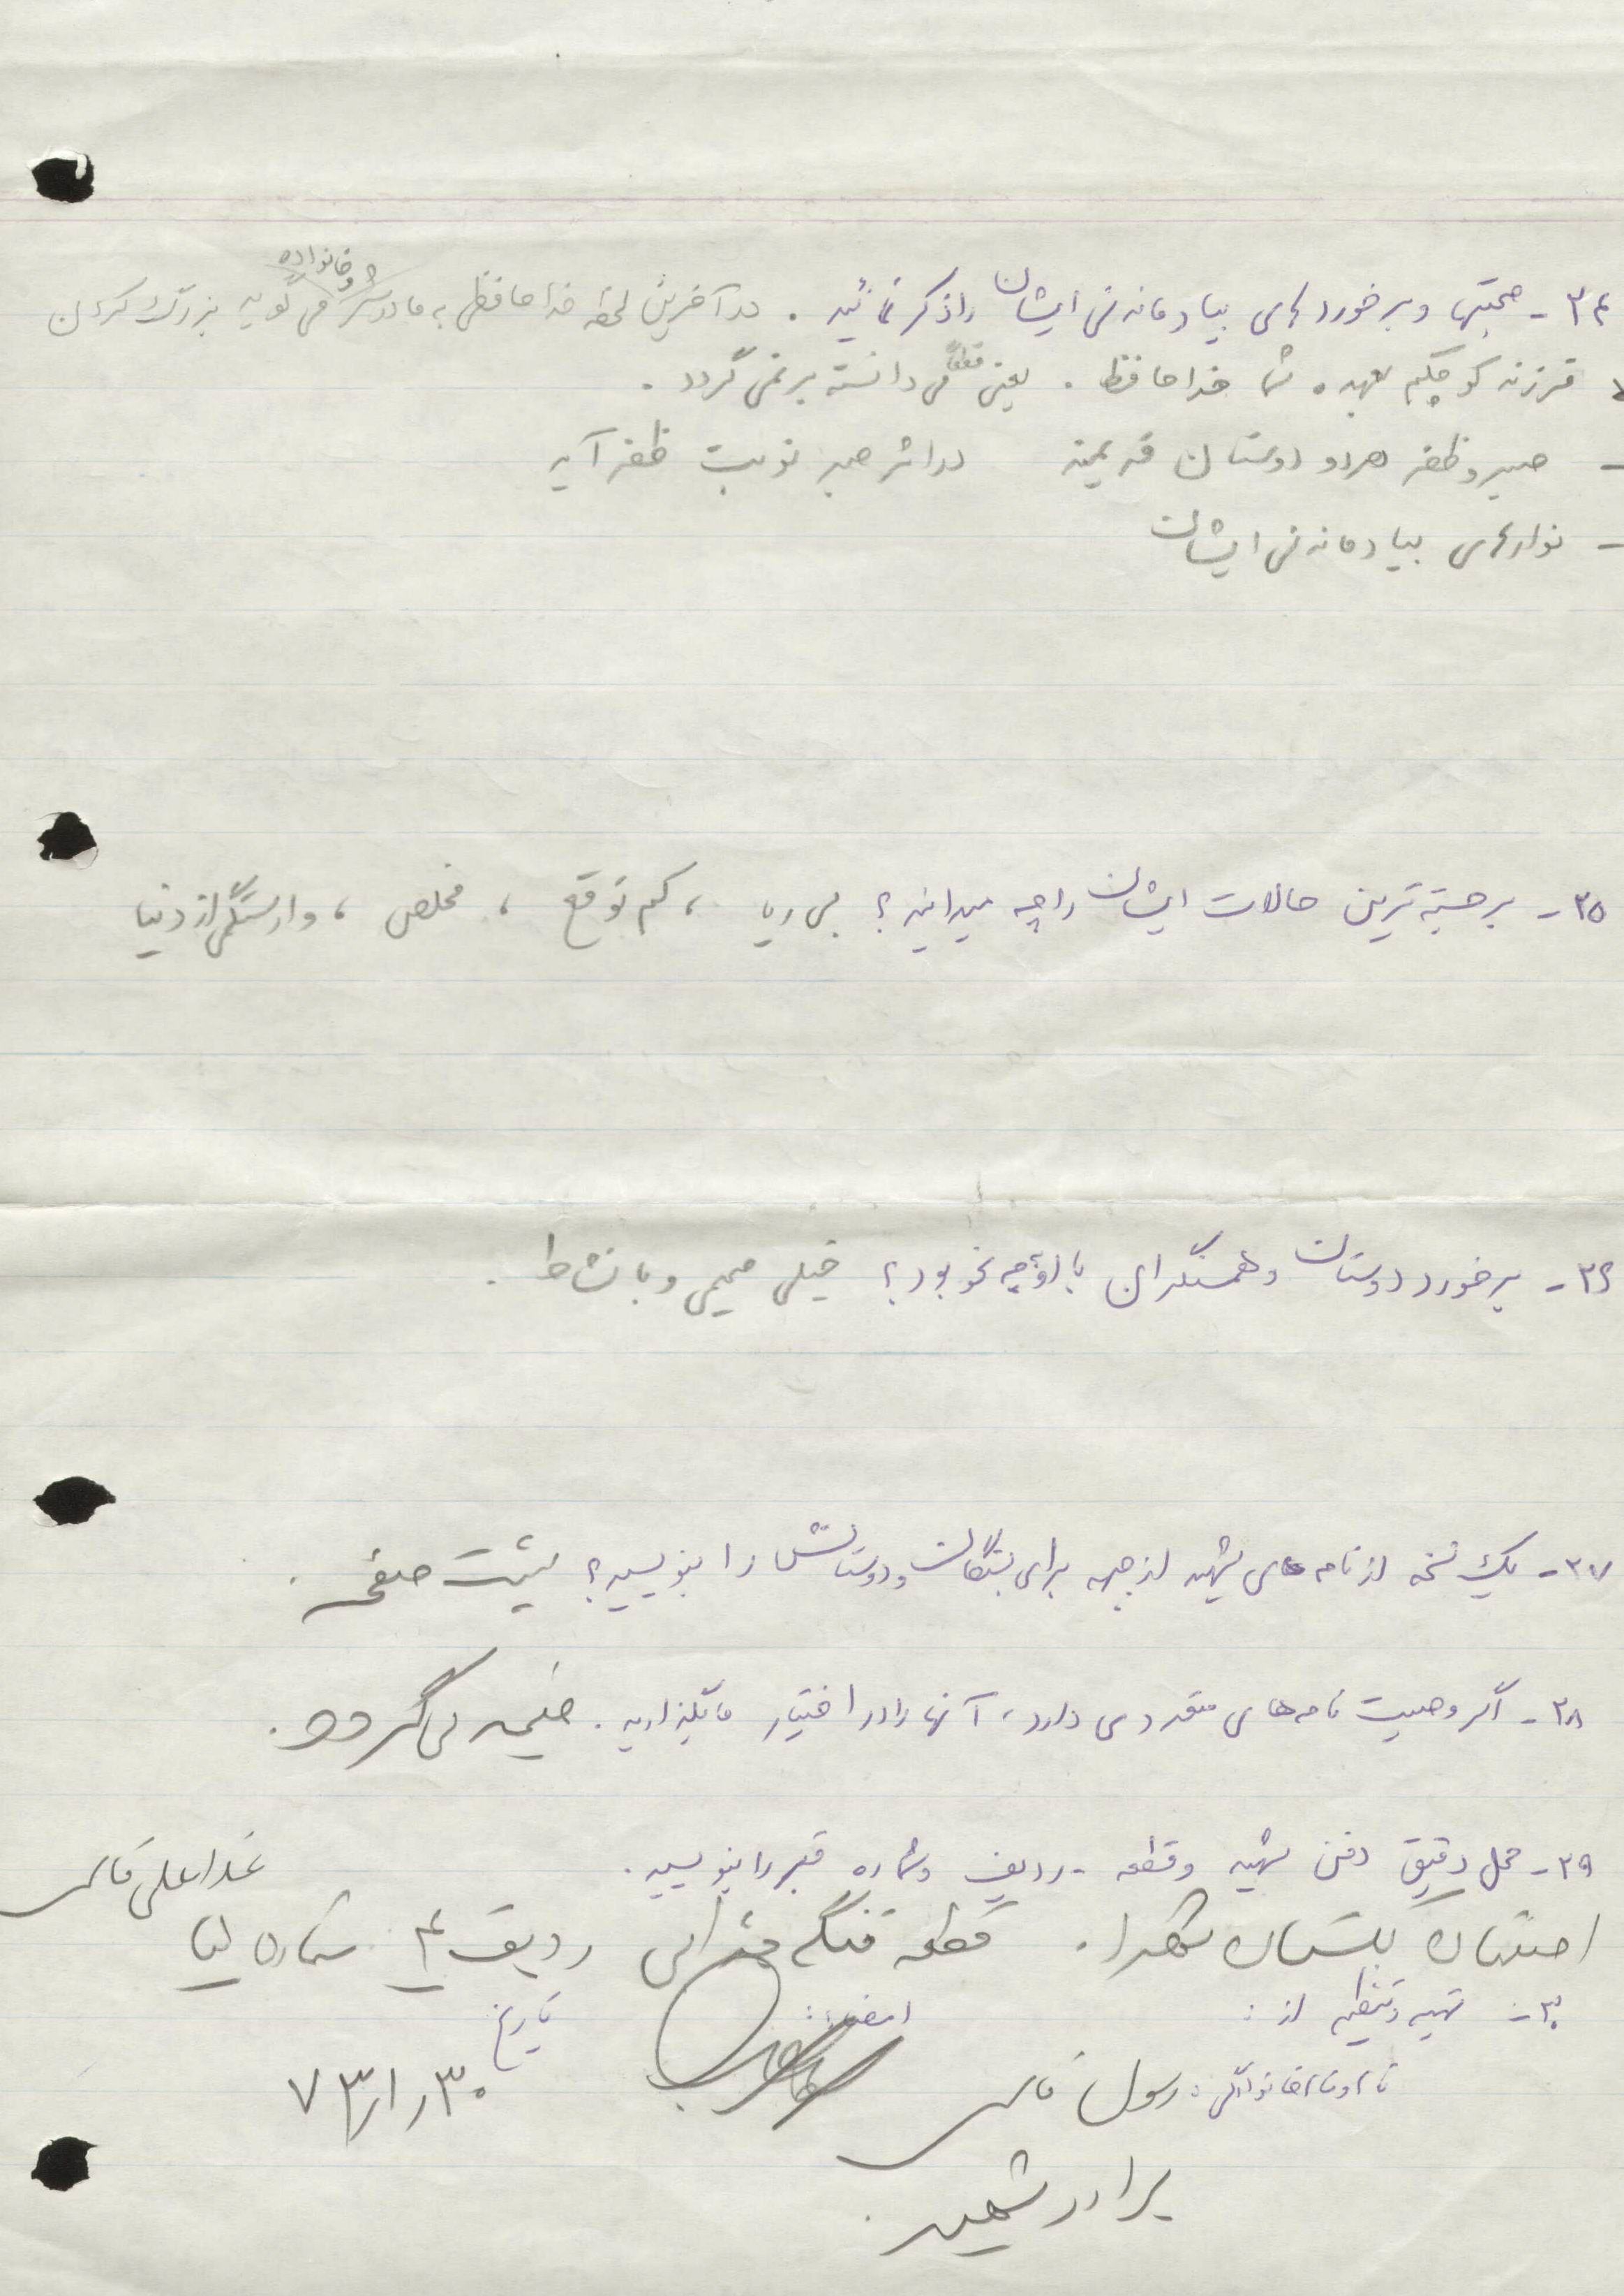 ۳۴- صحبتها و برخوردهای بیادماندنی ایشان را ذکر نمائید . در آخرین لحظه خداحافظی به مادرش و خانواده می گوید بزرگ کردن
فرزند کوچکم بعهده شما خداحافظ . یعنی قطعاً می دانسته برنمی گردد .
- صبر و ظفر هر دو دوستان قدیمند در اثر صبر نوبت ظفر آید
- نوارهای بیادماندنی ایشان
۳۵- برجسته ترین حالات ایشان را چه میدانید؟ بی ریا ، کم توقع ، مخلص ، وارستگی از دنیا
۳۶- برخورد دوستان و همسنگران با او چه نحو بود؟ خیلی صمیمی و با نشاط .
۳۷- یک نسخه از نامه های شهید از جبهه برای بستگان و دوستانش را بنویسید؟ پشت صفحه .
۳۸- اگر وصیت نامه های متعددی دارد، آنها را در اختیار ما بگذارید . ضمیمه می گردد .
۳۹- محل دقیق دفن شهید و قطعه - ردیف و شماره قبر را بنویسید .
اصفهان گلستان شهدا . قطعه ردیف ۴ شماره
۳۰- تهیه و تنظیم از : امضاء : تاریخ
نام و نام خانوادگی : رسول ۷۳/۱/۳۰
برادر شهید .